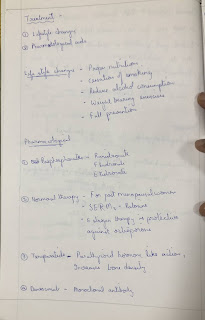 Treatment -
① Lifestyle changes
② Pharmacological
Lifestyle changes - Proper nutrition
- Cessation of smoking
- Reduce alcohol consumption
- Weight bearing exercise
- Fall prevention
Pharmacological
① Bisphosphonates -
② Hormonal therapy - For post menopausal women
- SERMs -
- Estrogen therapy - protective
against osteoporosis
③ Teriparatide - Parathyroid hormone like action,
Increases bone density
④ Denosumab - Monoclonal antibody